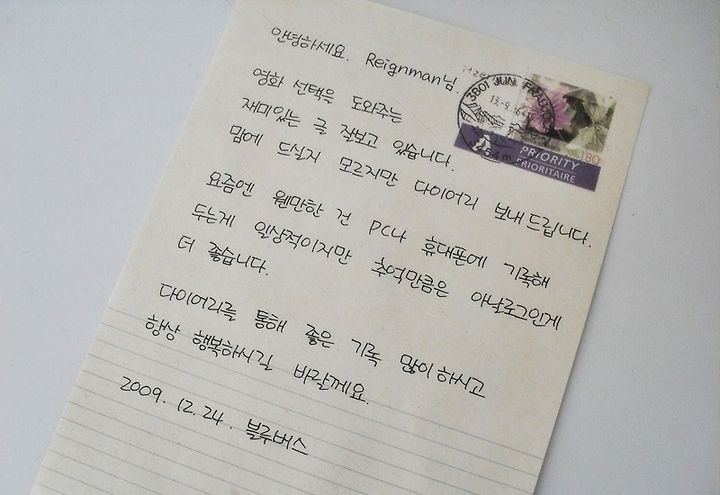 안녕하세요. Reignman님.
영화 선택을 도와주는
재미있는 글 잘보고 있습니다.
맘에 드실지 모르지만 다이어리 보내드립니다.
요즘엔 웬만한 건 PC나 휴대폰에 기록해
두는게 일상적이지만 추억만큼은 아날로그인게
더 좋습니다.
다이어리를 통해 좋은 기록 많이 하시고
항상 행복하시길 바랄게요.
2009. 12. 24. 블루버스
3801 JUNGFRAUJOCH
PRIORITY
PRIORITAIRE
180